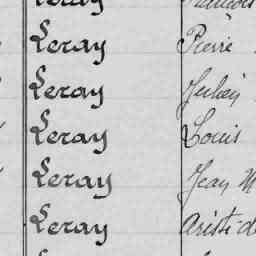 Leray Pierre
Leray Julien
Leray Louis
Leray Jean M
Leray Aristide